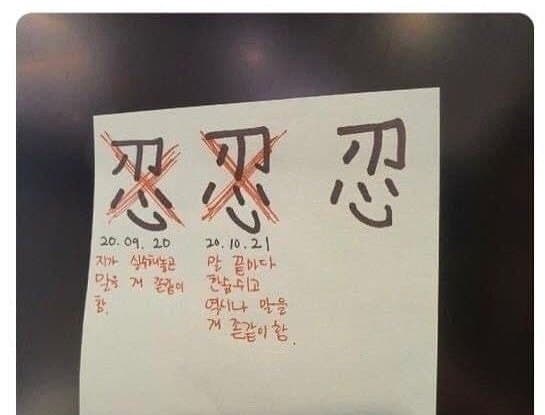 忍 忍 忍
20.09.20
지가 실수해놓고
말을 개 좆같이
함.
20.10.21
말 끝마다
한숨쉬고
역시나 말을
개 좆같이 함.